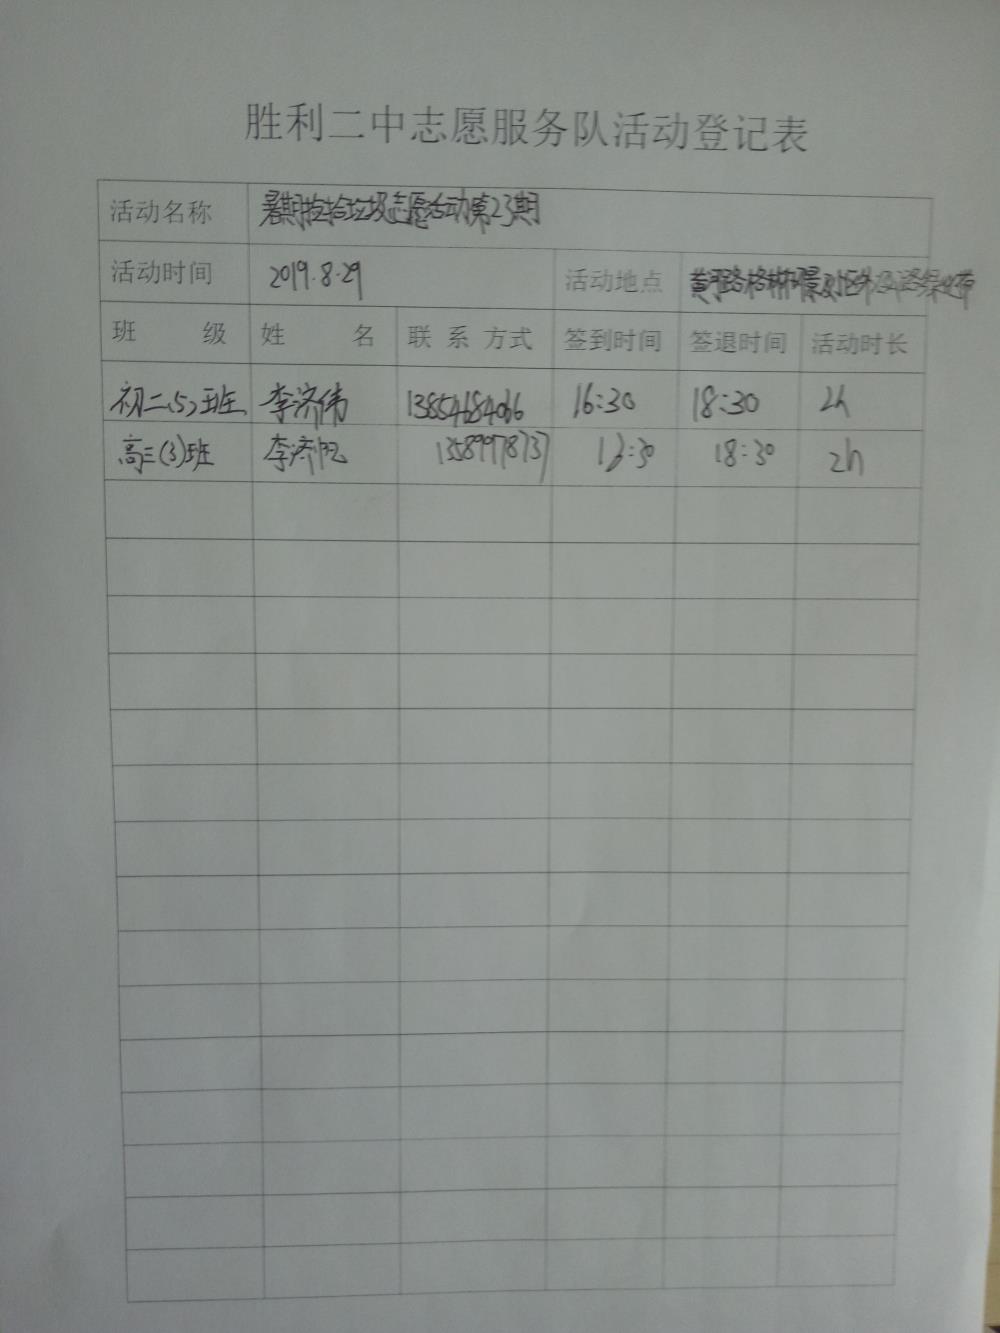 胜利二中志愿服务队活动登记表
活动名称 暑期捡拾垃圾志愿活动第23期
活动时间 2019.8.29 活动地点 黄河路格林
班 级 姓 名 联 系 方式 签到时间 签退时间 活动时长
初二(5)班 李济伟 13854684066 16:30 18:30 2h
高三(3)班 李济 13589978737 16:30 18:30 2h